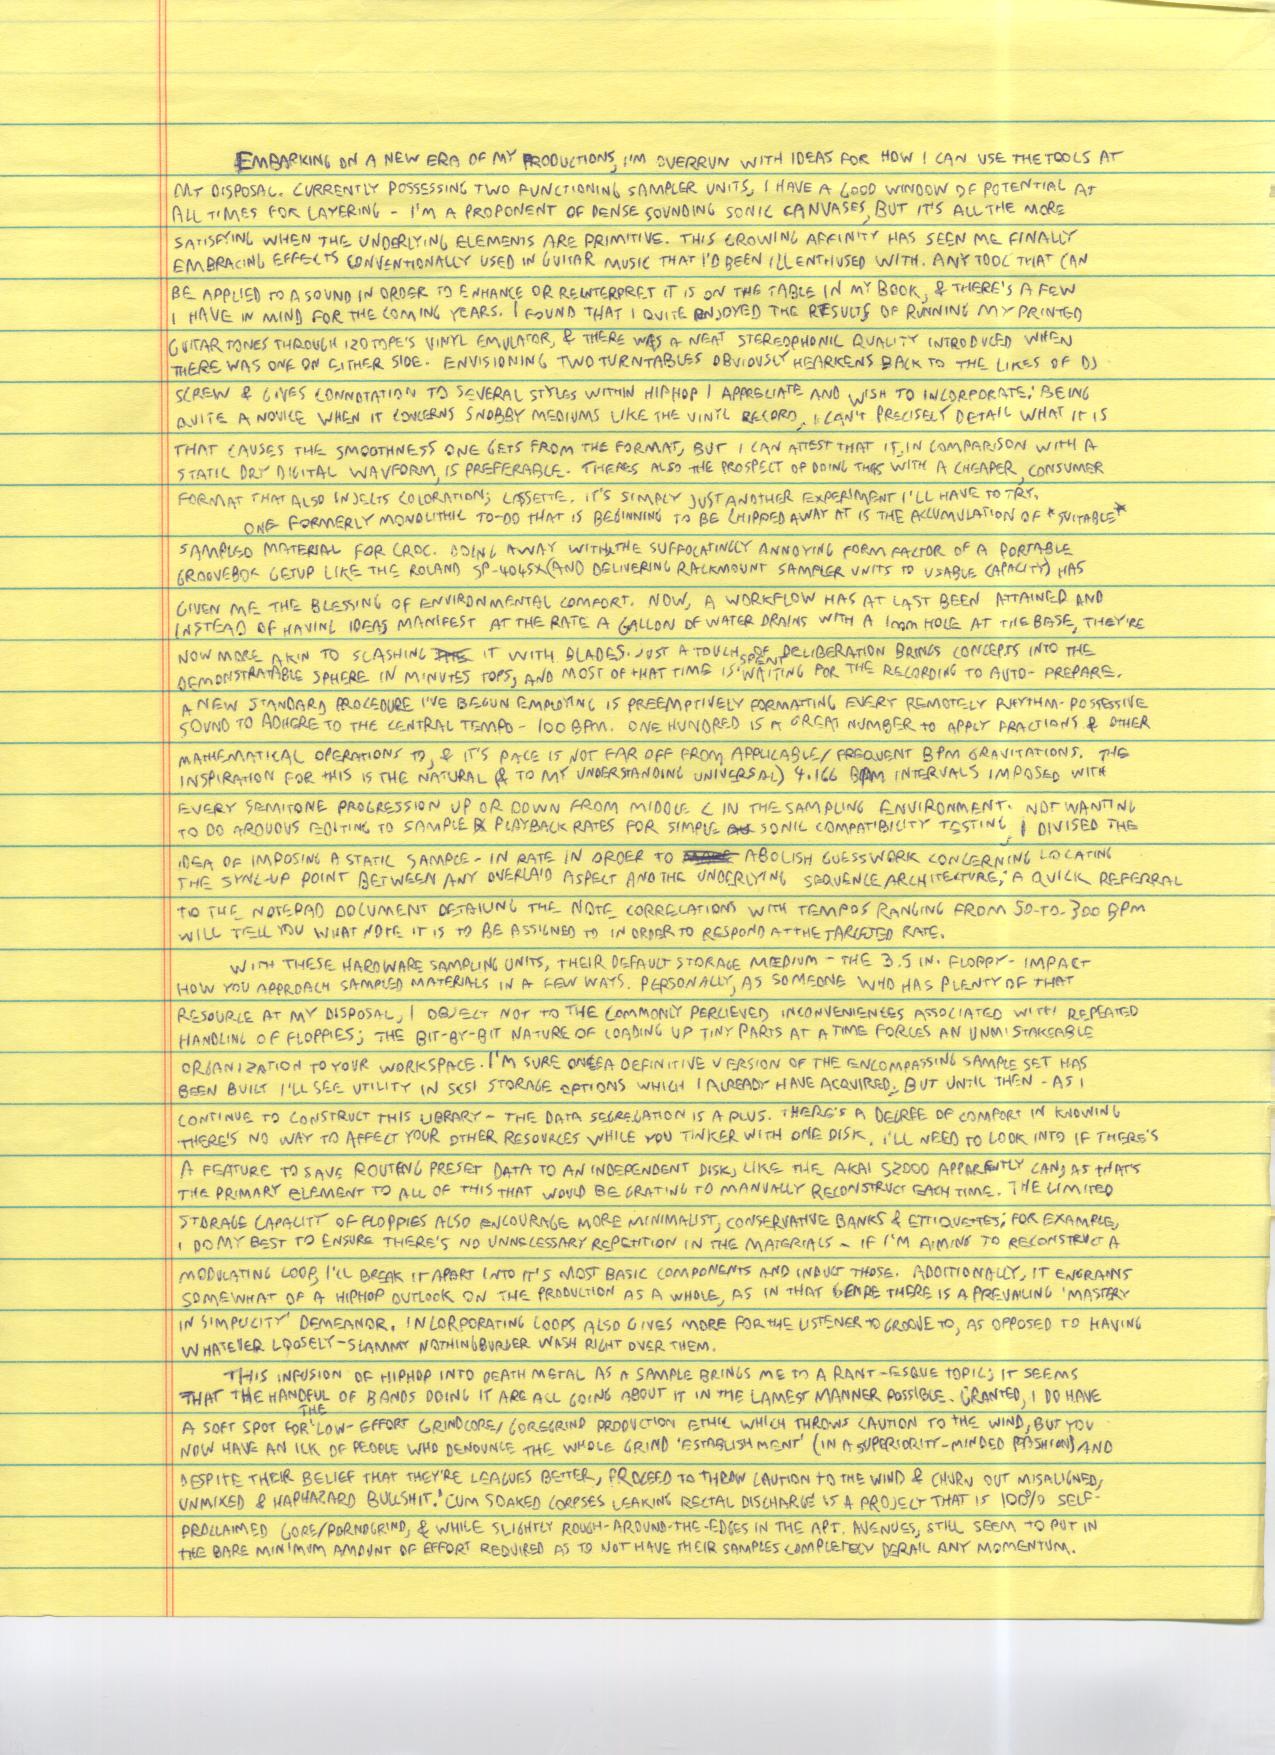 EMBARKING ON A NEW ERA OF MY PRODUCTIONS, I'M OVERRUN WITH IDEAS FOR HOW I CAN USE THE TOOLS AT
MY DISPOSAL. CURRENTLY POSSESSING TWO FUNCTIONING SAMPLER UNITS, I HAVE A GOOD WINDOW OF POTENTIAL AT
ALL TIMES FOR LAYERING - I'M A PROPONENT OF DENSE SOUNDING SONIC CANVASES, BUT IT'S ALL THE MORE
SATISFYING WHEN THE UNDERLYING ELEMENTS ARE PRIMITIVE. THIS GROWING AFFINITY HAS SEEN ME FINALLY
EMBRACING EFFECTS CONVENTIONALLY USED IN GUITAR MUSIC THAT I'D BEEN ILL ENTHUSED WITH. ANY TOOL THAT CAN
BE APPLIED TO A SOUND IN ORDER TO ENHANCE OR REINTERPRET IT IS ON THE TABLE IN MY BOOK, & THERE'S A FEW
I HAVE IN MIND FOR THE COMING YEARS. I FOUND THAT I QUITE ENJOYED THE RESULTS OF RUNNING MY PRINTED
GUITAR TONES THROUGH IZOTOPE'S VINYL EMULATOR, & THERE WAS A NEAT STEREOPHONIC QUALITY INTRODUCED WHEN
THERE WAS ONE ON EITHER SIDE. ENVISIONING TWO TURNTABLES OBVIOUSLY HEARKENS BACK TO THE LIKES OF DJ
SCREW & GIVES CONNOTATION TO SEVERAL STYLES WITHIN HIPHOP I APPRECIATE AND WISH TO INCORPORATE; BEING
QUITE A NOVICE WHEN IT CONCERNS SNOBBY MEDIUMS LIKE THE VINYL RECORD, I CAN'T PRECISELY DETAIL WHAT IT IS
THAT CAUSES THE SMOOTHNESS ONE GETS FROM THE FORMAT, BUT I CAN ATTEST THAT IT, IN COMPARISON WITH A
STATIC DRY DIGITAL WAVFORM, IS PREFERABLE. THERES ALSO THE PROSPECT OF DOING THIS WITH A CHEAPER, CONSUMER
FORMAT THAT ALSO INJECTS COLORATION; CASSETTE. IT'S SIMPLY JUST ANOTHER EXPERIMENT I'LL HAVE TO TRY.
ONE FORMERLY MONOLITHIC TO-DO THAT IS BEGINNING TO BE CHIPPED AWAY AT IS THE ACCUMULATION OF *SUITABLE*
SAMPLED MATERIAL FOR CROC. DOING AWAY WITH THE SUFFOCATINGLY ANNOYING FORM FACTOR OF A PORTABLE
GROOVEBOX GETUP LIKE THE ROLAND SP-404SX (AND DELIVERING RACKMOUNT SAMPLER UNITS TO USABLE CAPACITY) HAS
GIVEN ME THE BLESSING OF ENVIRONMENTAL COMFORT. NOW, A WORKFLOW HAS AT LAST BEEN ATTAINED AND
INSTEAD OF HAVING IDEAS MANIFEST AT THE RATE A GALLON OF WATER DRAINS WITH A 1mm HOLE AT THE BASE, THEY'RE
NOW MORE AKIN TO SLASHING IT WITH BLADES. JUST A TOUCH OF DELIBERATION BRINGS CONCEPTS INTO THE
DEMONSTRATABLE SPHERE IN MINUTES TOPS, AND MOST OF THAT TIME IS SPENT WAITING FOR THE RECORDING TO AUTO-PREPARE.
A NEW STANDARD PROCEDURE I'VE BEGUN EMPLOYING IS PREEMPTIVELY FORMATTING EVERY REMOTELY RHYTHM-POSSESSIVE
SOUND TO ADHERE TO THE CENTRAL TEMPO - 100 BPM. ONE HUNDRED IS A GREAT NUMBER TO APPLY FRACTIONS & OTHER
MATHEMATICAL OPERATIONS TO, & IT'S PACE IS NOT FAR OFF FROM APPLICABLE/FREQUENT BPM GRAVITATIONS. THE
INSPIRATION FOR THIS IS THE NATURAL (& TO MY UNDERSTANDING UNIVERSAL) 4.166 BPM INTERVALS IMPOSED WITH
EVERY SEMITONE PROGRESSION UP OR DOWN FROM MIDDLE C IN THE SAMPLING ENVIRONMENT. NOT WANTING
TO DO ARDUOUS EDITING TO SAMPLE PLAYBACK RATES FOR SIMPLE SONIC COMPATIBILITY TESTING, I DIVISED THE
IDEA OF IMPOSING A STATIC SAMPLE-IN RATE IN ORDER TO ABOLISH GUESSWORK CONCERNING LOCATING
THE SYNC-UP POINT BETWEEN ANY OVERLAID ASPECT AND THE UNDERLYING SEQUENCE ARCHITECTURE; A QUICK REFERRAL
TO THE NOTEPAD DOCUMENT DETAILING THE NOTE CORRELATIONS WITH TEMPOS RANGING FROM 50-TO-300 BPM
WILL TELL YOU WHAT NOTE IT IS TO BE ASSIGNED TO IN ORDER TO RESPOND AT THE TARGETED RATE.
WITH THESE HARDWARE SAMPLING UNITS, THEIR DEFAULT STORAGE MEDIUM - THE 3.5 IN. FLOPPY - IMPACT
HOW YOU APPROACH SAMPLED MATERIALS IN A FEW WAYS. PERSONALLY, AS SOMEONE WHO HAS PLENTY OF THAT
RESOURCE AT MY DISPOSAL, I OBJECT NOT TO THE COMMONLY PERCIEVED INCONVENIENCES ASSOCIATED WITH REPEATED
HANDLING OF FLOPPIES; THE BIT-BY-BIT NATURE OF LOADING UP TINY PARTS AT A TIME FORCES AN UNMISTAKEABLE
ORGANIZATION TO YOUR WORKSPACE. I'M SURE ONCE A DEFINITIVE VERSION OF THE ENCOMPASSING SAMPLE SET HAS
BEEN BUILT I'LL SEE UTILITY IN SCSI STORAGE OPTIONS WHICH I ALREADY HAVE ACQUIRED; BUT UNTIL THEN - AS I
CONTINUE TO CONSTRUCT THIS LIBRARY - THE DATA SEGREGATION IS A PLUS. THERE'S A DEGREE OF COMFORT IN KNOWING
THERE'S NO WAY TO AFFECT YOUR OTHER RESOURCES WHILE YOU TINKER WITH ONE DISK. I'LL NEED TO LOOK INTO IF THERE'S
A FEATURE TO SAVE ROUTING PRESET DATA TO AN INDEPENDENT DISK, LIKE THE AKAI S2000 APPARENTLY CAN, AS THAT'S
THE PRIMARY ELEMENT TO ALL OF THIS THAT WOULD BE GRATING TO MANUALLY RECONSTRUCT EACH TIME. THE LIMITED
STORAGE CAPACITY OF FLOPPIES ALSO ENCOURAGE MORE MINIMALIST, CONSERVATIVE BANKS & ETTIQUETTES; FOR EXAMPLE,
I DO MY BEST TO ENSURE THERE'S NO UNNECESSARY REPETITION IN THE MATERIALS - IF I'M AIMING TO RECONSTRUCT A
MODULATING LOOP, I'LL BREAK IT APART INTO IT'S MOST BASIC COMPONENTS AND INDUCT THOSE. ADDITIONALLY, IT ENGRAINS
SOMEWHAT OF A HIPHOP OUTLOOK ON THE PRODUCTION AS A WHOLE, AS IN THAT GENRE THERE IS A PREVAILING 'MASTERY
IN SIMPLICITY' DEMEANOR. INCORPORATING LOOPS ALSO GIVES MORE FOR THE LISTENER TO GROOVE TO, AS OPPOSED TO HAVING
WHATEVER LOOSELY-SLAMMY NOTHINGBURGER WASH RIGHT OVER THEM.
THIS INFUSION OF HIPHOP INTO DEATH METAL AS A SAMPLE BRINGS ME TO A RANT-ESQUE TOPIC; IT SEEMS
THAT THE HANDFUL OF BANDS DOING IT ARE ALL GOING ABOUT IT IN THE LAMEST MANNER POSSIBLE. GRANTED, I DO HAVE
A SOFT SPOT FOR THE LOW-EFFORT GRINDCORE/GOREGRIND PRODUCTION ETHIC WHICH THROWS CAUTION TO THE WIND, BUT YOU
NOW HAVE AN ILK OF PEOPLE WHO DENOUNCE THE WHOLE GRIND 'ESTABLISHMENT' (IN A SUPERIORITY-MINDED FASHION) AND
DESPITE THEIR BELIEF THAT THEY'RE LEAGUES BETTER, PROCEED TO THROW CAUTION TO THE WIND & CHURN OUT MISALIGNED,
UNMIXED & HAPHAZARD BULLSHIT. 'CUM SOAKED CORPSES LEAKING RECTAL DISCHARGE' IS A PROJECT THAT IS 100% SELF-
PROCLAIMED GORE/PORNOGRIND, & WHILE SLIGHTLY ROUGH-AROUND-THE-EDGES IN THE APT. AVENUES, STILL SEEM TO PUT IN
THE BARE MINIMUM AMOUNT OF EFFORT REQUIRED AS TO NOT HAVE THEIR SAMPLES COMPLETELY DERAIL ANY MOMENTUM.